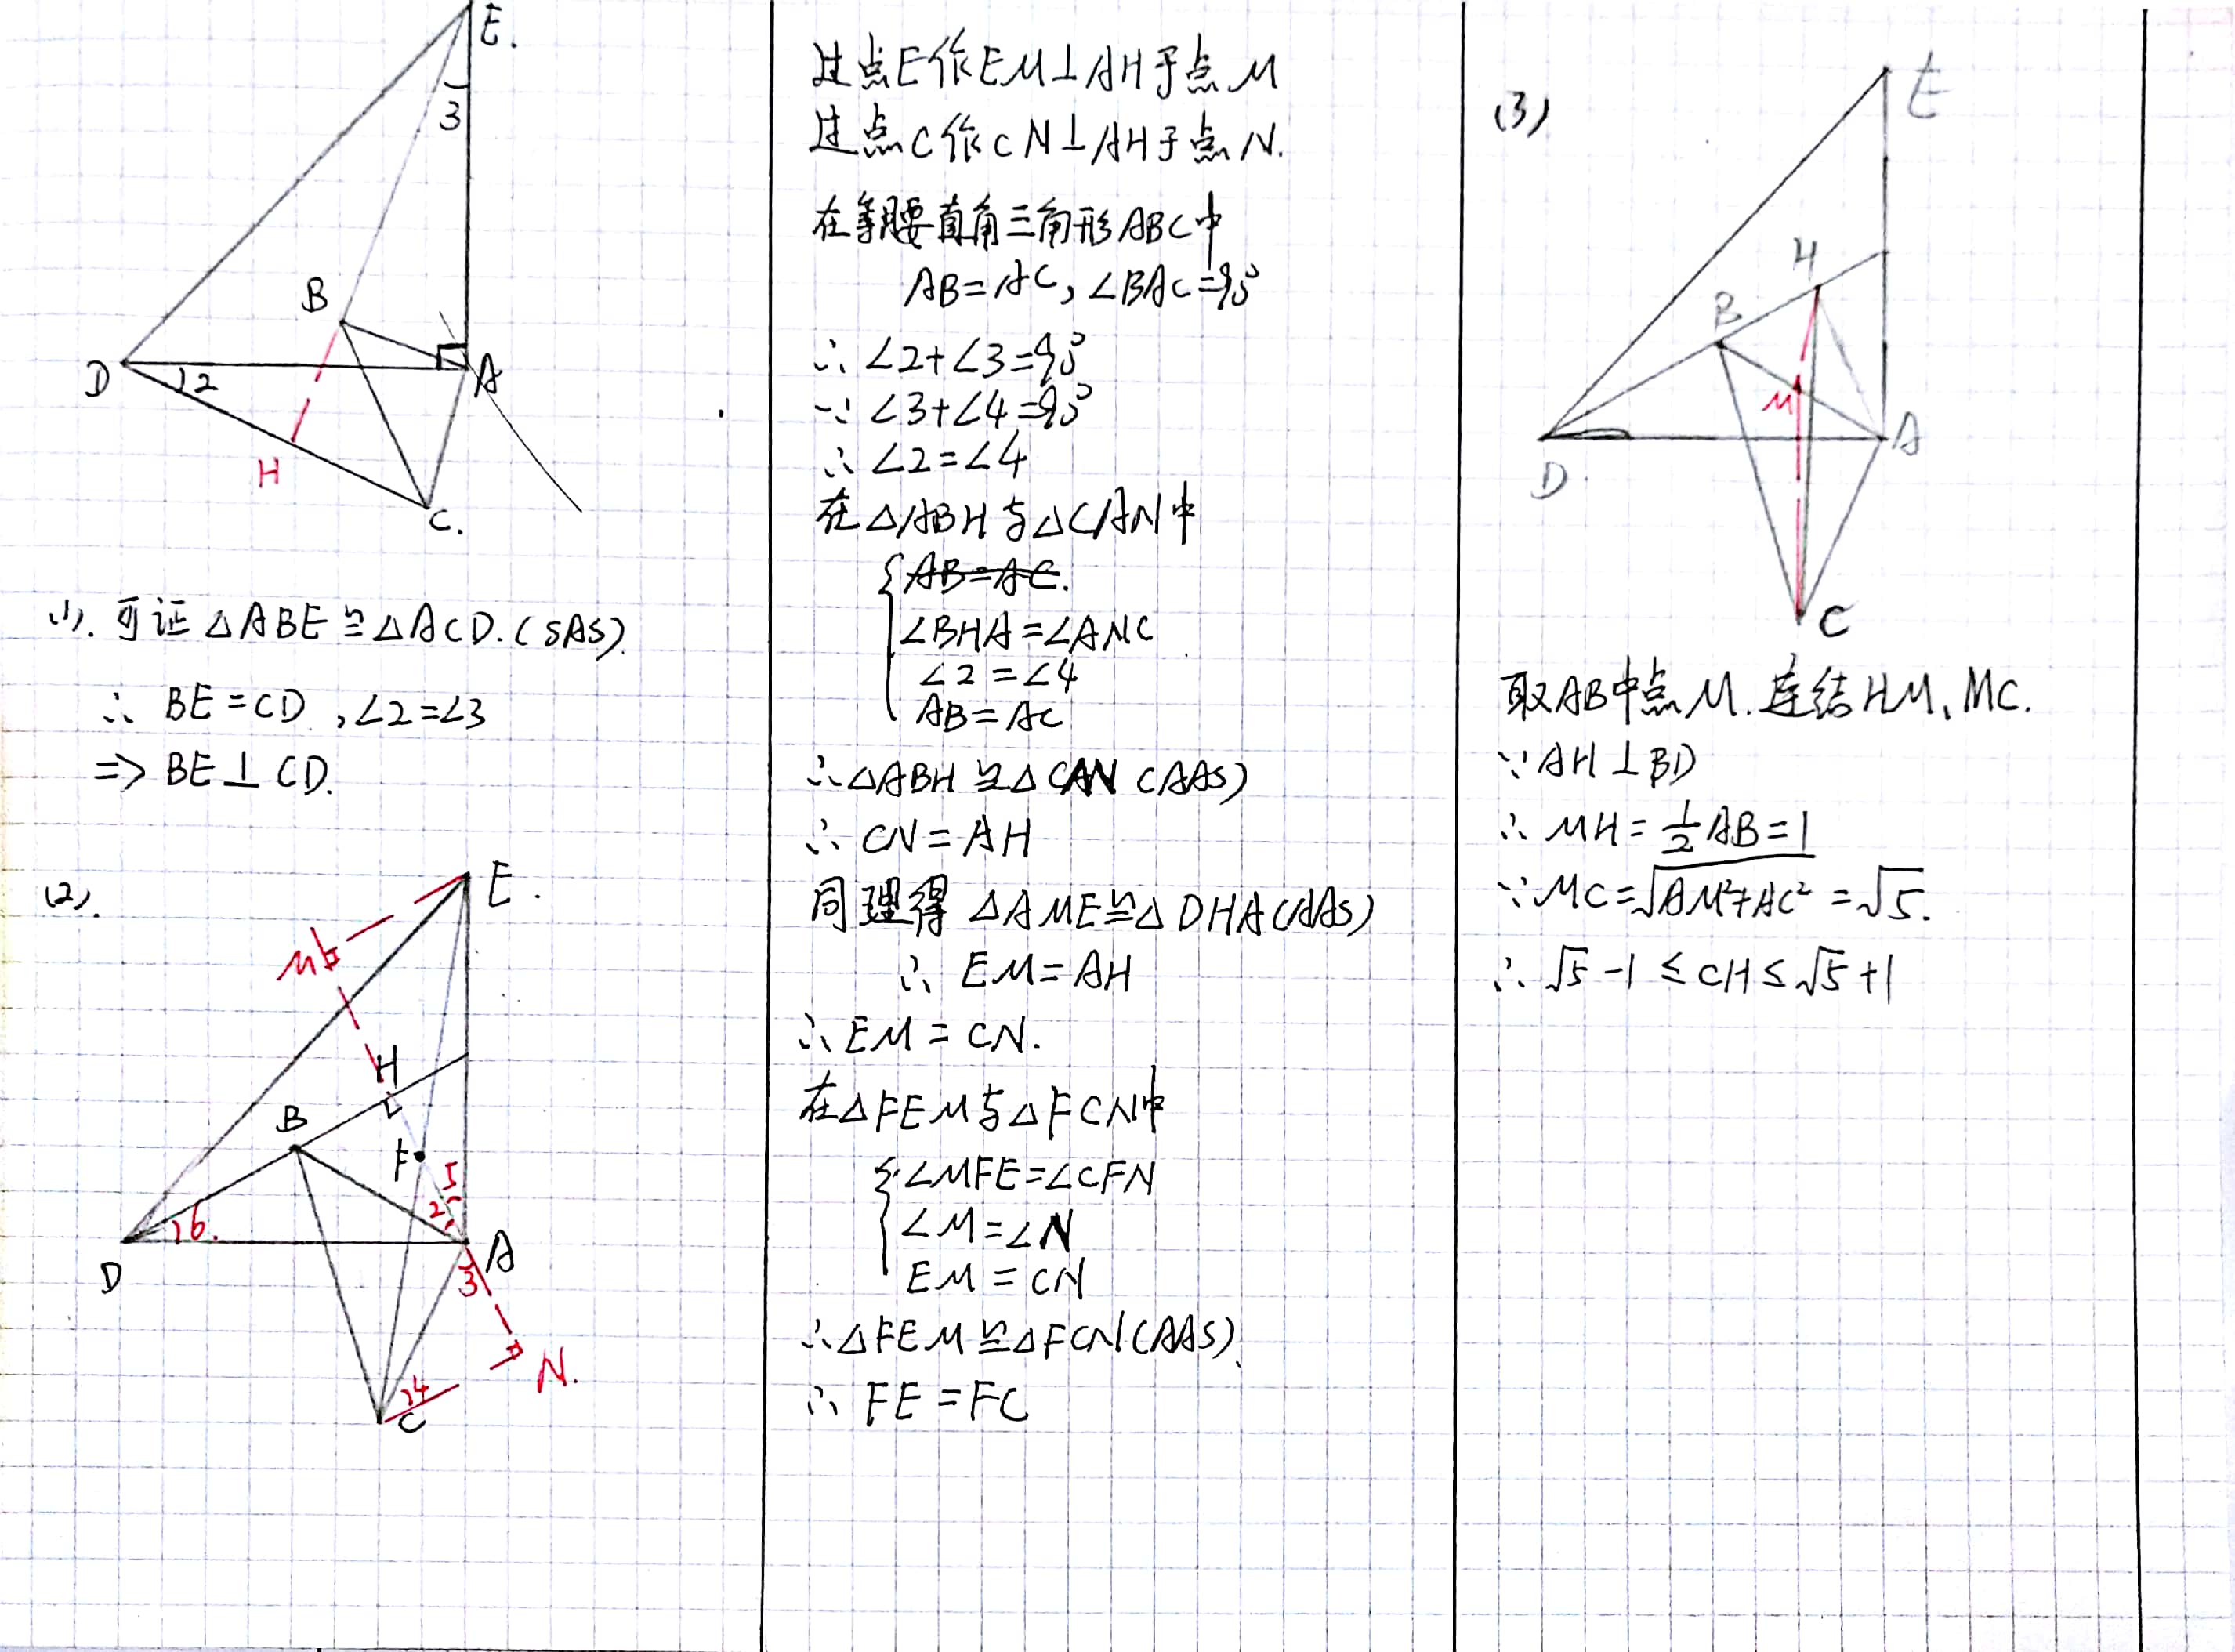 E.
3
B
D
2
A
H
C.
(1). 可证△ABE≌△ACD.(SAS).
∴ BE=CD,∠2=∠3
=> BE⊥CD.
(2).
E.
M
H
B
F
5
2
6.
D
A
3
4
C
N.
过点E作EM⊥AH于点M
过点C作CN⊥AH于点N.
在等腰直角三角形ABC中
AB=AC,∠BAC=90°
∴ ∠2+∠3=90°
∵ ∠3+∠4=90°
∴ ∠2=∠4
在△ABH与△CAN中
AB=AC.
∠BHA=∠ANC
∠2=∠4
AB=AC
∴△ABH≌△CAN (AAS)
∴ CN=AH
同理得 △AME≌△DHA(AAS)
∴ EM=AH
∴EM=CN.
在△FEM与△FCN中
∠MFE=∠CFN
∠M=∠N
EM=CN
∴△FEM≌△FCN(AAS).
∴ FE=FC
(3)
E
H
B
M
A
D
C
取AB中点M.连结HM、MC.
∵AH⊥BD
∴ MH=½AB=1
∵MC=√AM²+AC² =√5.
∴ √5-1≤CH≤√5+1